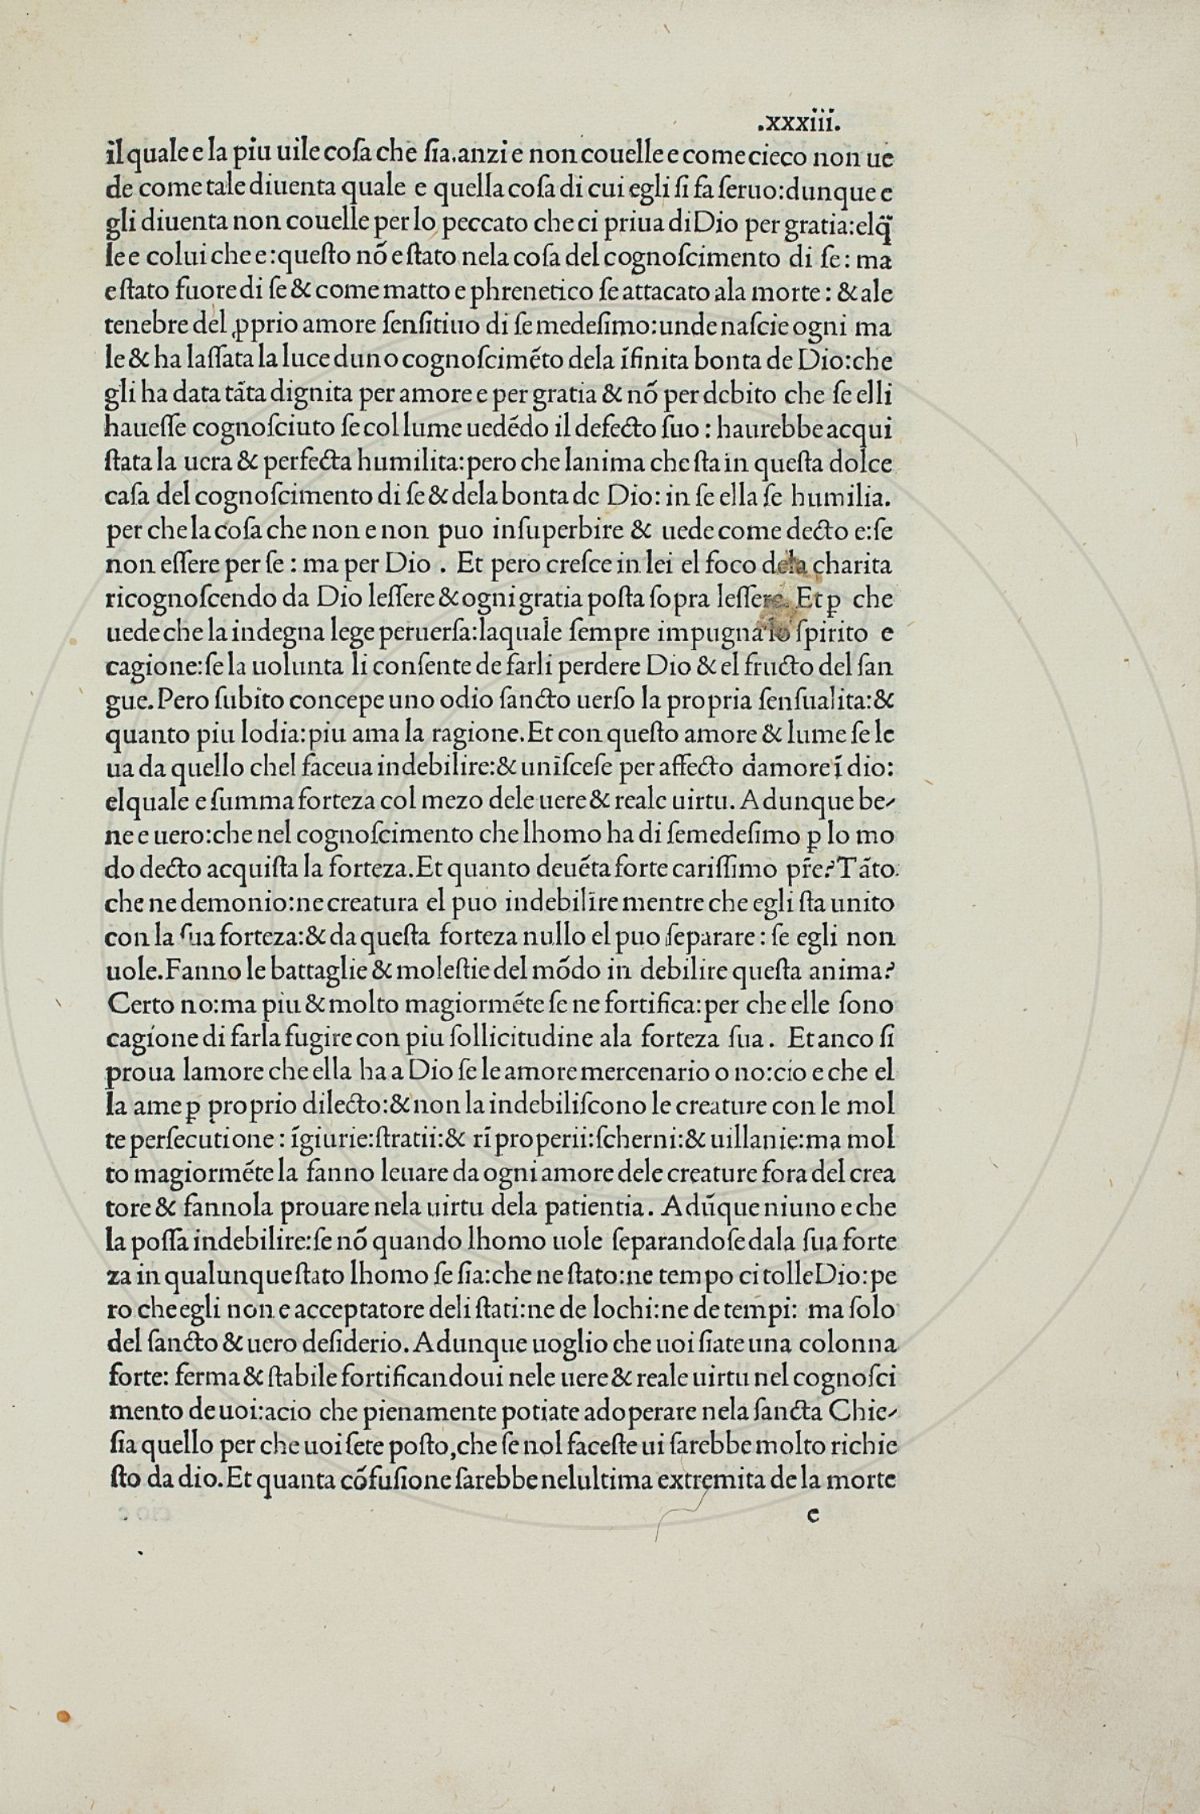 .xxxiii.
il quale e la piu uile coſa che ſia.anzi e non couelle e come cieco non ue
de come tale diuenta quale e quella coſa di cui egli ſi fa ſeruo:dunque e
gli diuenta non couelle per lo peccato che ci priua di Dio per gratia:elq̃
le e colui che e:queſto nõ e ſtato nela coſa del cognoſcimento di ſe: ma
e ſtato fuore di ſe & come matto e phrenetico ſe attacato ala morte: & ale
tenebre del ꝓprio amore ſenſitiuo di ſe medeſimo:unde naſcie ogni ma
le & ha laſſata la luce duno cognoſcimẽto dela ĩfinita bonta de Dio:che
gli ha data tãta dignita per amore e per gratia & nõ per debito che ſe elli
haueſſe cognoſciuto ſe col lume uedẽdo il defecto ſuo: haurebbe acqui
ſtata la uera & perfecta humilita:pero che lanima che ſta in queſta dolce
caſa del cognoſcimento di ſe & dela bonta de Dio: in ſe ella ſe humilia.
per che la coſa che non e non puo inſuperbire & uede come decto e:ſe
non eſſere per ſe: ma per Dio . Et pero creſce in lei el foco dela charita
ricognoſcendo da Dio leſſere & ogni gratia poſta ſopra leſſere. Et ꝑ che
uede che la indegna lege peruerſa:laquale ſempre impugna lo ſpirito e
cagione:ſe la uolunta li conſente de farli perdere Dio & el fructo del ſan
gue.Pero ſubito concepe uno odio ſancto uerſo la propria ſenſualita:&
quanto piu lodia:piu ama la ragione.Et con queſto amore & lume ſe le
ua da quello chel faceua indebilire:& uniſceſe per affecto damore ĩ dio:
elquale e ſumma forteza col mezo dele uere & reale uirtu. Adunque be-
ne e uero:che nel cognoſcimento che lhomo ha di ſemedeſimo ꝑ lo mo
do decto acquiſta la forteza.Et quanto deuẽta forte cariſſimo pr̃e?Tãto.
che ne demonio:ne creatura el puo indebilire mentre che egli ſta unito
con la ſua forteza:& da queſta forteza nullo el puo ſeparare: ſe egli non
uole.Fanno le battaglie & moleſtie del mõdo in debilire queſta anima?
Certo no:ma piu & molto magiormẽte ſe ne fortifica:per che elle ſono
cagione di farla fugire con piu ſollicitudine ala forteza ſua. Et anco ſi
proua lamore che ella ha a Dio ſe le amore mercenario o no:cio e che el
la ame ꝑ proprio dilecto:& non la indebiliſcono le creature con le mol
te perſecutione: ĩgiurie:ſtratii:& rĩproperii:ſcherni:& uillanie:ma mol
to magiormẽte la fanno leuare da ogni amore dele creature fora del crea
tore & fannola prouare nela uirtu dela patientia. Adũque niuno e che
la poſſa indebilire:ſe nõ quando lhomo uole ſeparandoſe dala ſua forte
za in qualunque ſtato lhomo ſe ſia:che ne ſtato:ne tempo ci tolle Dio:pe
ro che egli non e acceptatore deli ſtati:ne de lochi:ne de tempi: ma ſolo
del ſancto & uero deſiderio.Adunque uoglio che uoi ſiate una colonna
forte: ferma & ſtabile fortificandoui nele uere & reale uirtu nel cognoſci
mento de uoi:acio che pienamente potiate adoperare nela ſancta Chie-
ſia quello per che uoi ſete poſto,che ſe nol faceſte ui ſarebbe molto richie
ſto da dio.Et quanta cõfuſione ſarebbe nelultima extremita de la morte
e